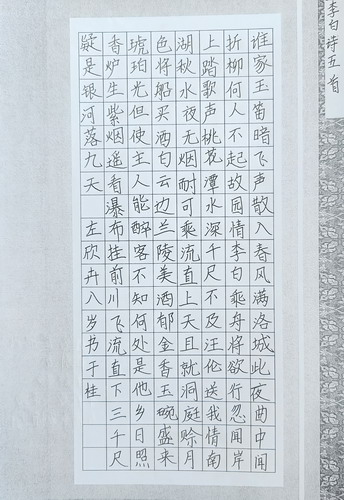 李白诗五首
谁家玉笛暗飞声散入春风满洛城此夜曲中闻
折柳何人不起故园情李白乘舟将欲行忽闻岸
上踏歌声桃花潭水深千尺不及汪伦送我情南
湖秋水夜无烟耐可乘流直上天且就洞庭赊月
色将船买酒白云边兰陵美酒郁金香玉碗盛来
琥珀光但使主人能醉客不知何处是他乡日照
香炉生紫烟遥看瀑布挂前川飞流直下三千尺
疑是银河落九天 左欣卉八岁书于桂